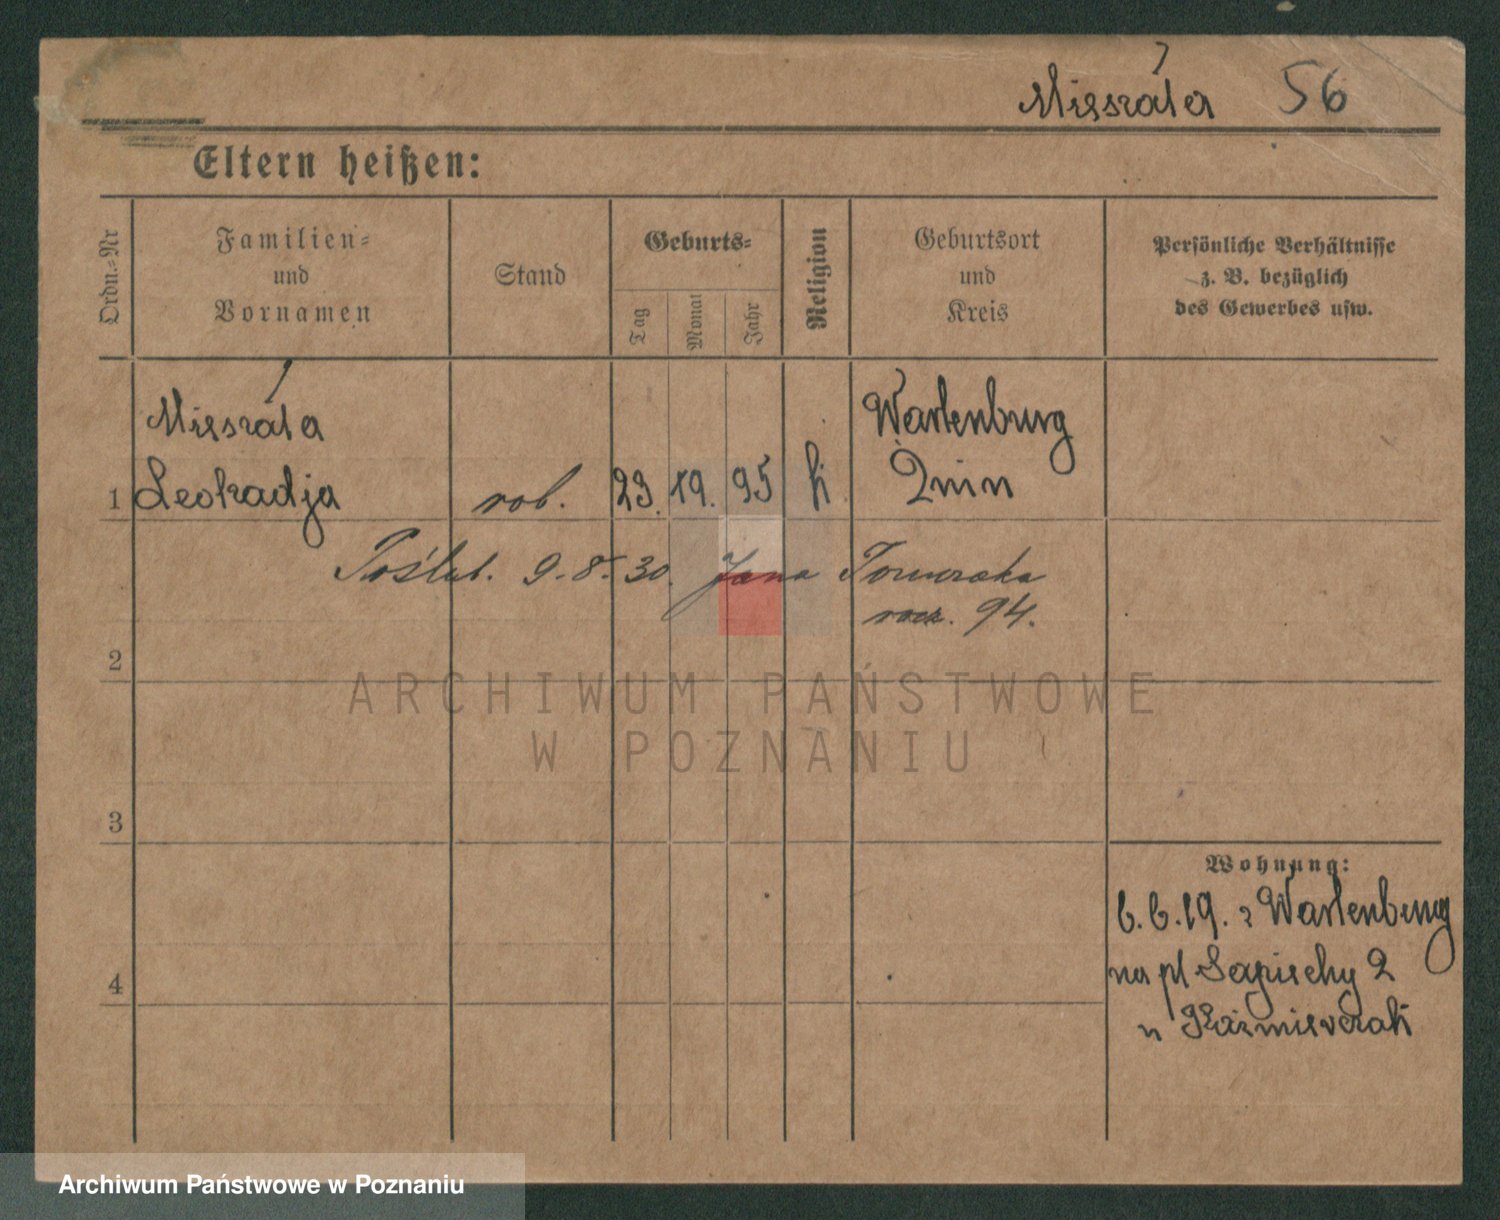 56
Eltern heißen:
Ordn.-Nr
Familien-
und
Vornamen
Stand
Geburts-
Tag
Monat
Jahr
Religion
Geburtsort
und
Kreis
Persönliche Verhältnisse
z. B. bezüglich
des Gewerbes usw.
Wartenburg
1
Leokadja
rob. 23. 95 k
Poślub. 9.8.30. Jana
rocz. 94.
2
ARCHIWUM PAŃSTWOWE
W POZNANIU
3
Wohnung:
6.6.19. z Wartenburg
na pl Sapiechy 2
4
u
Archiwum Państwowe w Poznaniu